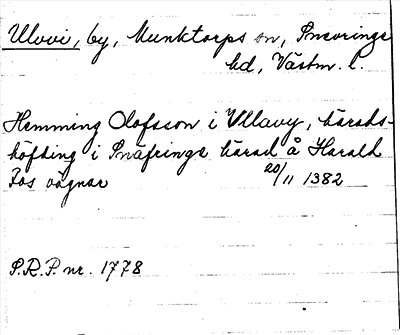 Ulvvi, by, Munktorps sn, Snevringe
hd, Västm. l.
Hemming Olofsson i Ullavy, härads-
höfding i Snäfringe härad å Harald
Fos vägnar 20/11 1382
S.R.P. nr. 1778